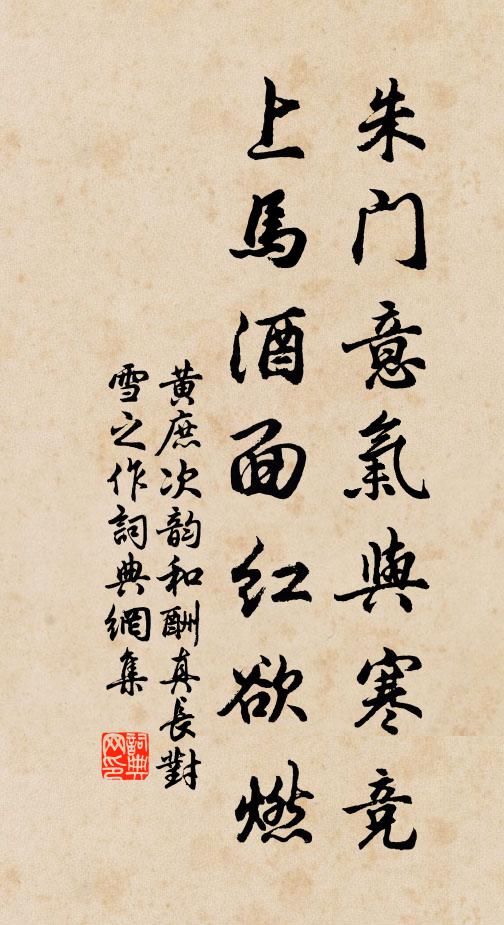 朱门意氣與寒竞
上馬酒面红欲燃
黄庶次韵和酬真長對
雪之作詞典網集
詞典网印